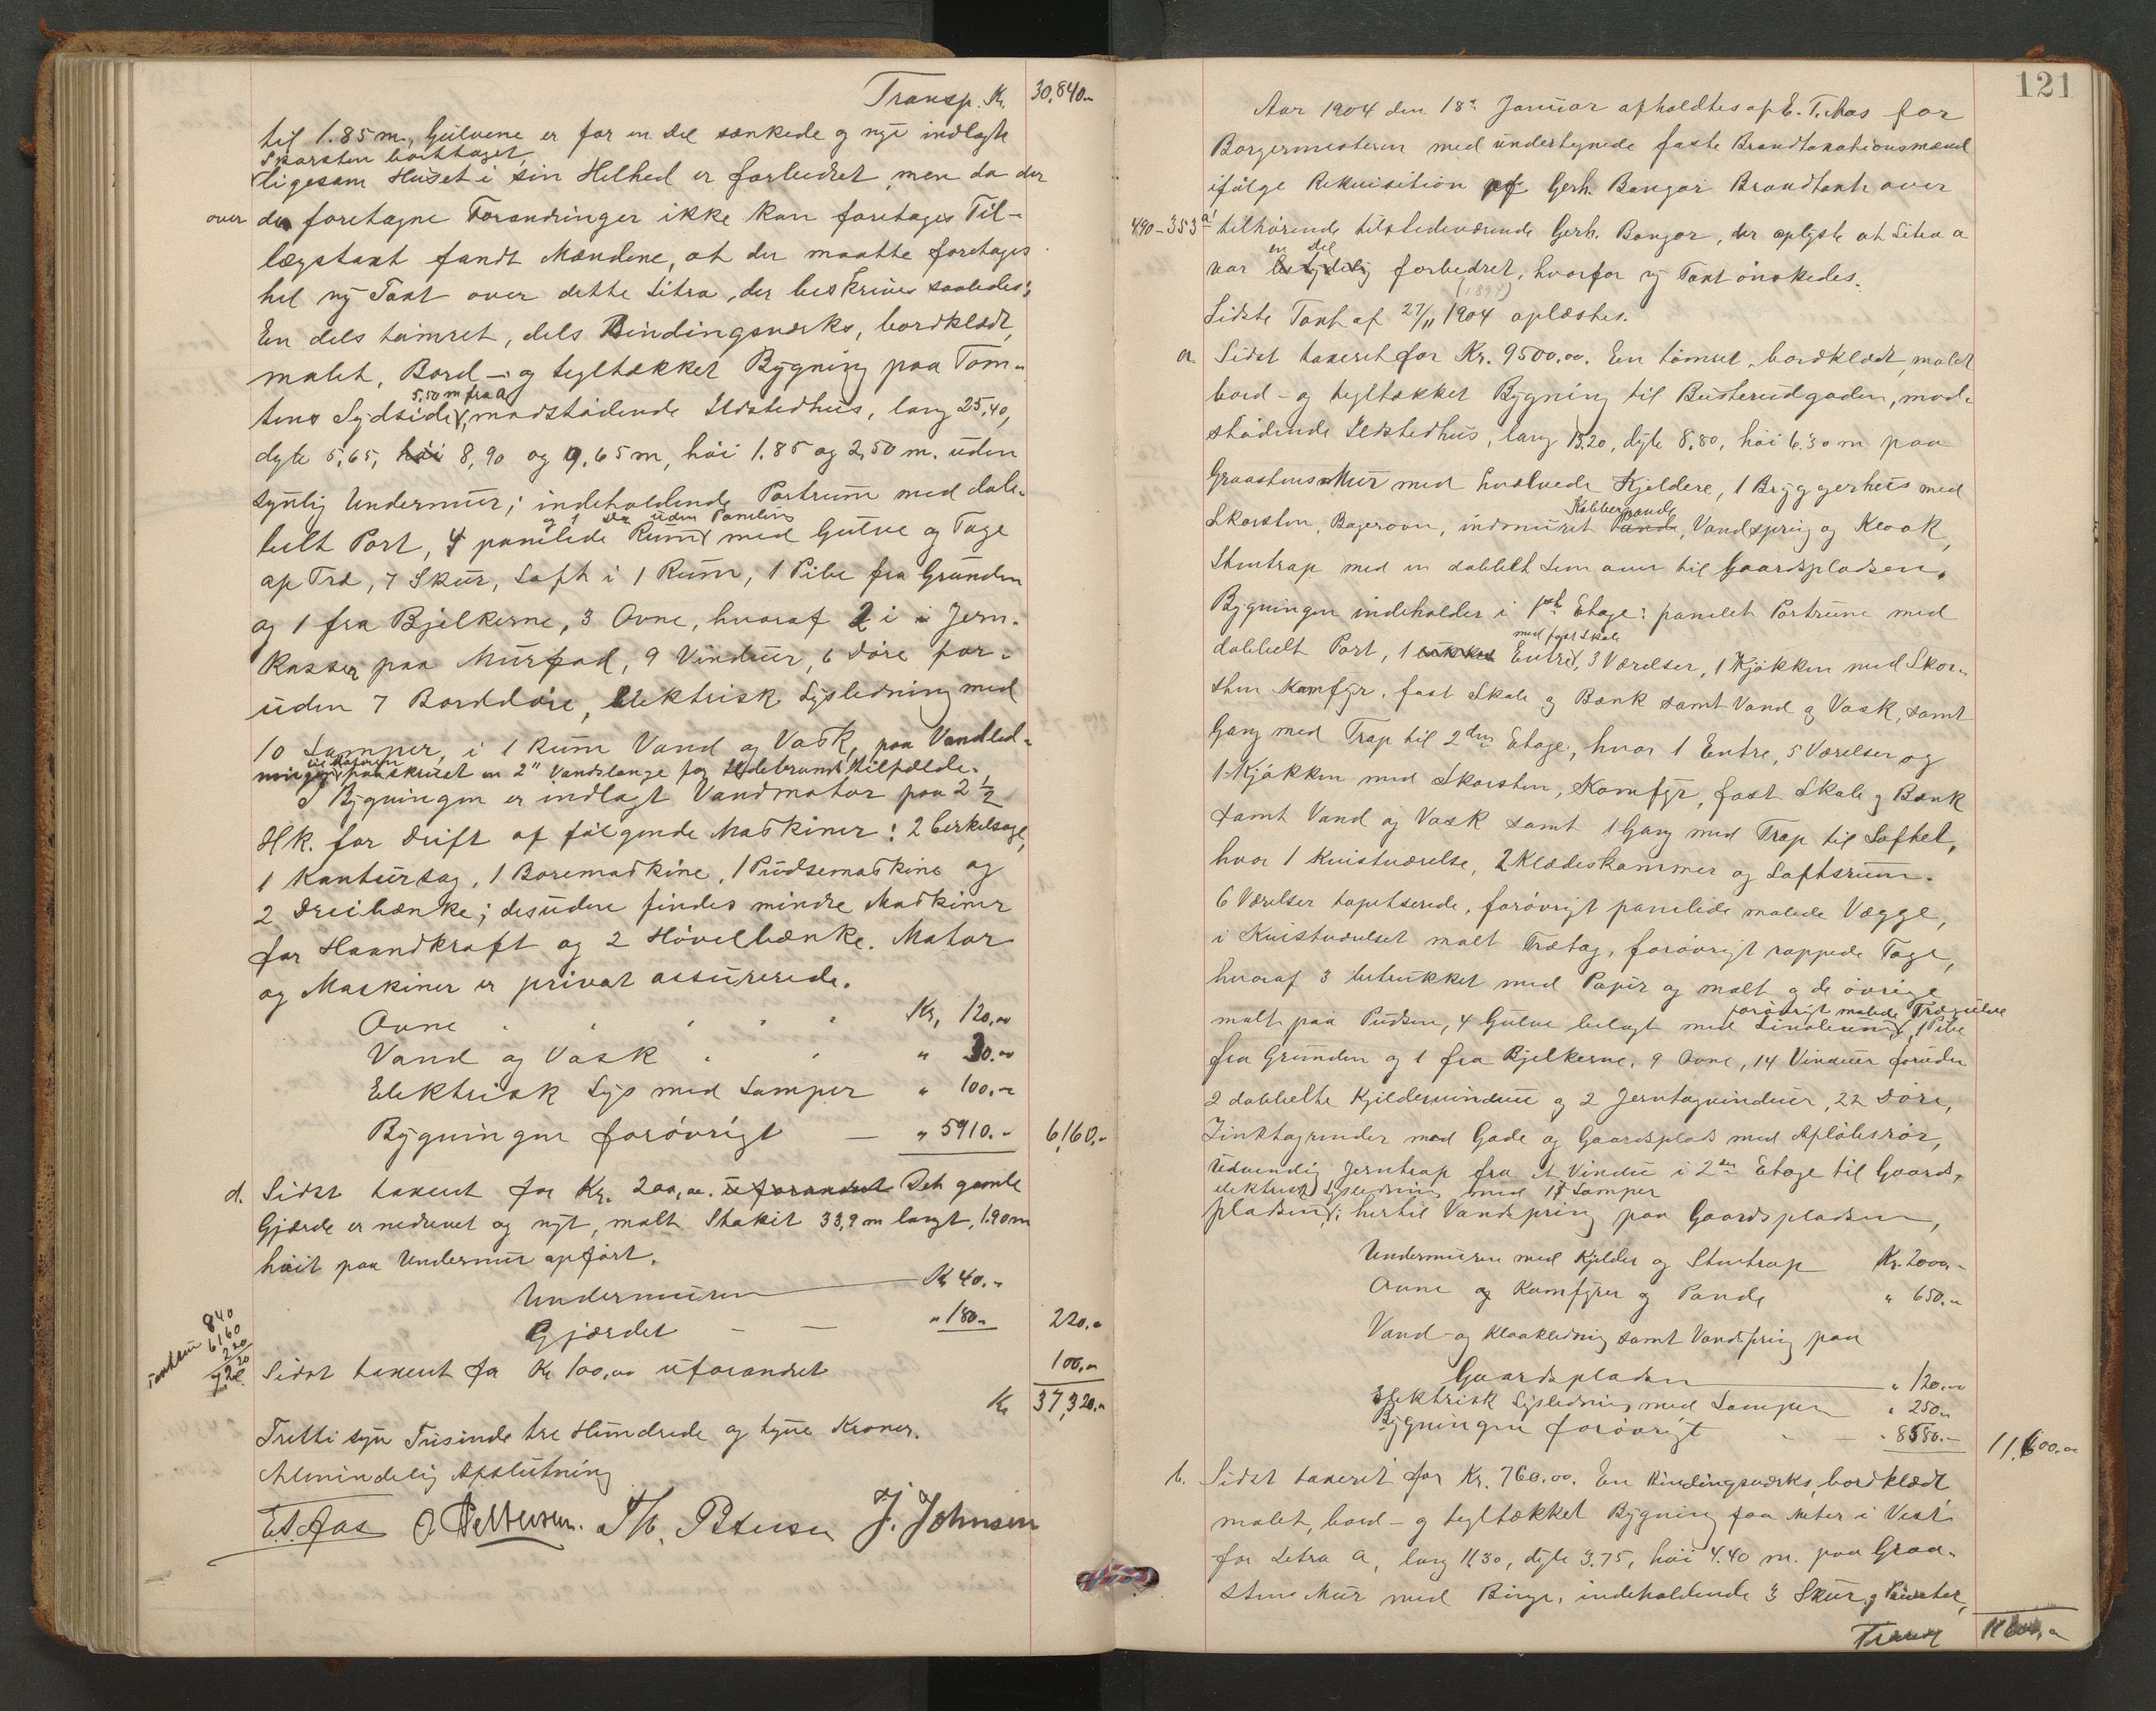 Transp. Kr. 30,840.-
til 1.85 m., Gulvene er for en Del sænkede og nye indlagte
Skorsten borttaget,
ligesom Huset i sin Helhed er forbedret, men da der
over de foretagne Forandringer ikke kan foretages Til-
lægstaxt fandt Mændene, at der maatte foretages
hel ny Taxt over dette Litra, der beskrives saaledes:
En dels tømret, dels Bindingsværks, bordklædt,
malet, Bord- og tegltækket Bygning paa Tom-
5,50 m fra a
tens Sydside, modstødende Ildstedhus, lang 25,40,
dyb 5,65, høi 8,90 og 9,65 m, høi 1.85 og 2,50 m. uden
synlig Undermur; indeholdende Portrum med dob-
og 1 do uden Paneling
belt Port, 4 panelede Rum med Gulve og Tage
af Træ, 7 Skur, Loft i 1 Rum, 1 Pibe fra Grunden
og 1 fra Bjelkerne, 3 Ovne, hvoraf 2 i Jern-
kasser paa Murfod, 9 Vinduer, 6 Døre for-
uden 7 Borddøre, Elektrisk Lysledning med
10 Lamper, i 1 Rum Vand og Vask, paa Vandled-
til Motoren
ningen paaskruet en 2" Vandslange for Ildebrands Tilfælde.
I Bygningen er indlagt Vandmotor paa 2 1/2
Hk. for Drift af følgende Maskiner: 2 Cirkelsage,
1 Kontursag, 1 Boremaskine, 1 Pudsemaskine og
2 Dreibænke; desuden findes mindre Maskiner
for Haandkraft og 2 Høvelbænke. Motor
og Maskiner er privat assurerede.
Ovne Kr. 120.00
Vand og Vask " 30.00
Elektrisk Lys med Lamper " 100.-
Bygningen forøvrigt — " 5910.- 6,160.-
d. Sidst taxeret for Kr. 200,00. uforandret Det gamle
Gjærde er nedrevet og nyt, malt Stakit 33,9 m langt, 1.90 m
høit paa Undermur opført.
Undermuren Kr 40.-
Gjærdet — — " 180.- 220.-
840
6160
220
7220
Sidst taxeret for Kr 100,00 uforandret 100.-
Kr 37,320.-
Tretti syv Tusinde tre Hundrede og tyve Kroner.
Almindelig Afslutning
E.T. Aas O Pettersen. Th. Petersen J. Johnsen
121
Aar 1904 den 18de Januar afholdtes af E. T. Aas for
Borgermesteren med undertegnede faste Brandtaxationsmænd
ifølge Rekvisition af Gerh. Bangor Brandtaxt over
490-353a1 tilhørende tilstedeværende Gerh. Bangor, der oplyste at Litra a
en Del
var betydelig forbedret, hvorfor ny Taxt ønskedes.
(1897)
Sidste Taxt af 27/11 1904 oplæstes.
a. Sidst taxeret for Kr. 9500.00. En tømret, bordklædt, malet
bord- og tegltækket Bygning til Busterudgaden, mod-
stødende Ildstedhus, lang 13,20, dyb 8,80, høi 6.30 m paa
Graastens Mur med hvælvede Kjeldere, 1 Bryggerhus med
Kobberpande
Skorsten, Bagerovn, indmuret Pande, Vandspring og Kloak,
Stentrap med en dobbelt Lem over til Gaardspladsen.
Bygningen indeholder i 1ste Etage: panelet Portrum med
med fast Skab
dobbelt Port, 1 Entre, 3 Værelser, 1 Kjøkken med Skor-
sten Komfyr, fast Skab og Bænk samt Vand og Vask, samt
Gang med Trap til 2den Etage, hvor 1 Entre, 5 Værelser og
1 Kjøkken med Skorsten, Komfyr, fast Skab og Bænk
samt Vand og Vask samt 1 Gang med Trap til Loftet,
hvor 1 Kvistværelse, 2 Klædeskammer og Loftsrum.
6 Værelser tapetserede, forøvrigt panelede malede Vægge,
i Kvistværelset malt Trætag, forøvrigt rappede Tage,
hvoraf 3 betrukket med Papir og malt og de øvrige
forøvrigt malede Trægulve
malt paa Pudsen, 4 Gulve belagt med Linoleum, 1 Pibe
fra Grunden og 1 fra Bjelkerne, 9 Ovne, 14 Vinduer foruden
2 dobbelte Kjeldervinduer og 2 Jerntagvinduer, 22 Døre,
Zinktagrender mod Gade og Gaardsplads med Afløbsrør,
Udvendig Jerntrap fra et Vindu i 2en Etage til Gaards-
elektrisk Lysledning med 17 Lamper
pladsen; hertil Vandspring paa Gaardspladsen,
Undermuren med Kjelder og Stentrap Kr. 2000.-
Ovne og Komfyrer og Pande " 650.-
Vand- og Kloakledning samt Vandspring paa
Gaardspladsen " 120.00
Elektrisk Lysledning med Lamper " 250.-
Bygningen forøvrigt " 8580.- 11,600.00
b. Sidst taxeret for Kr. 760.00. En Bindingsværks, bordklædt
malet, bord- og tegltækket Bygning faa Meter i Vest
for Litra a, lang 11,30, dyb 3.75, høi 4.40 m. paa Graa-
stens Mur med Binge, indeholdende 3 Skur,
Transp 11600.-